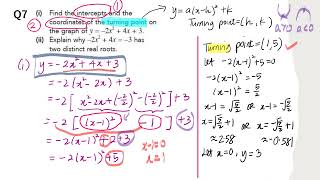 Q7 (i) Find the intercepts and the
coordinates of the turning point on
the graph of y = −2x² + 4x + 3.
(ii) Explain why −2x² + 4x = −3 has
two distinct real roots.
① ②
y = a(x-h)²+k
Turning point = (h, k)
a>0 a<0
(i) y = -2x² + 4x + 3
= -2(x² - 2x) + 3
= -2[x² - 2x + (-2/2)² - (-2/2)²] + 3
= -2[(x-1)² - 1] + 3
= -2(x-1)² + 2 + 3
= -2(x-1)² + 5
x-1=0
x=1
Turning point = (1,5)
let -2(x-1)²+5=0
-2(x-1)² = -5
(x-1)² = 5/2
x-1 = √5/2 or x-1 = -√5/2
x = √5/2 + 1 or x = -√5/2 + 1
≈ 2.58 ≈ -0.581
Let x=0, y=3